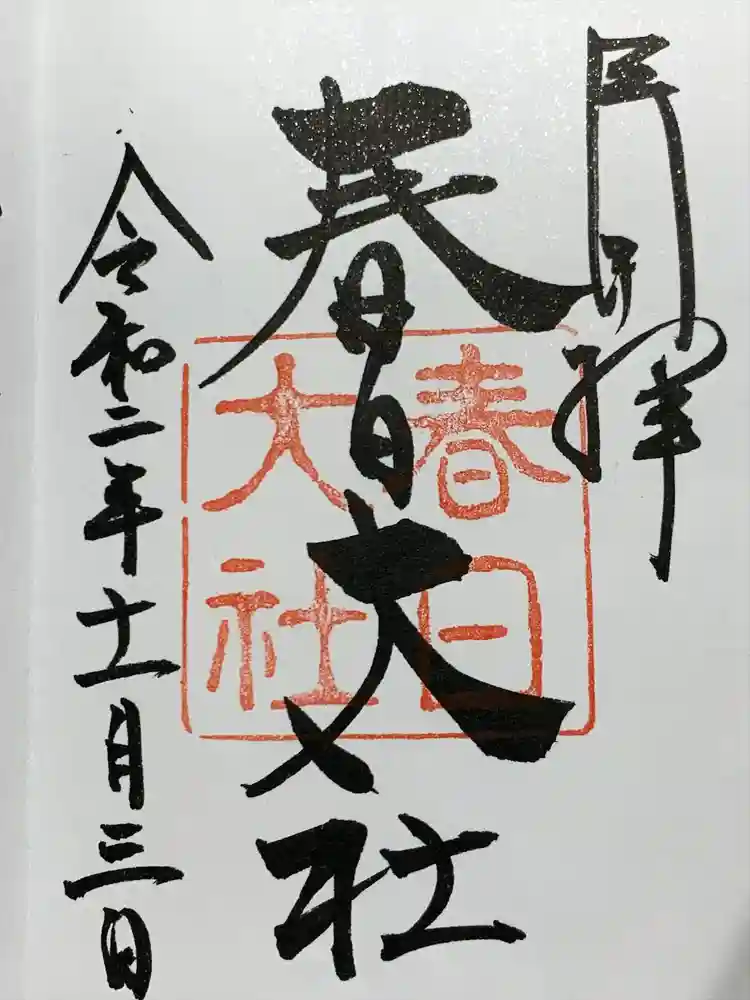 拝
春日大社
春日
大社
令和二年十一月三日